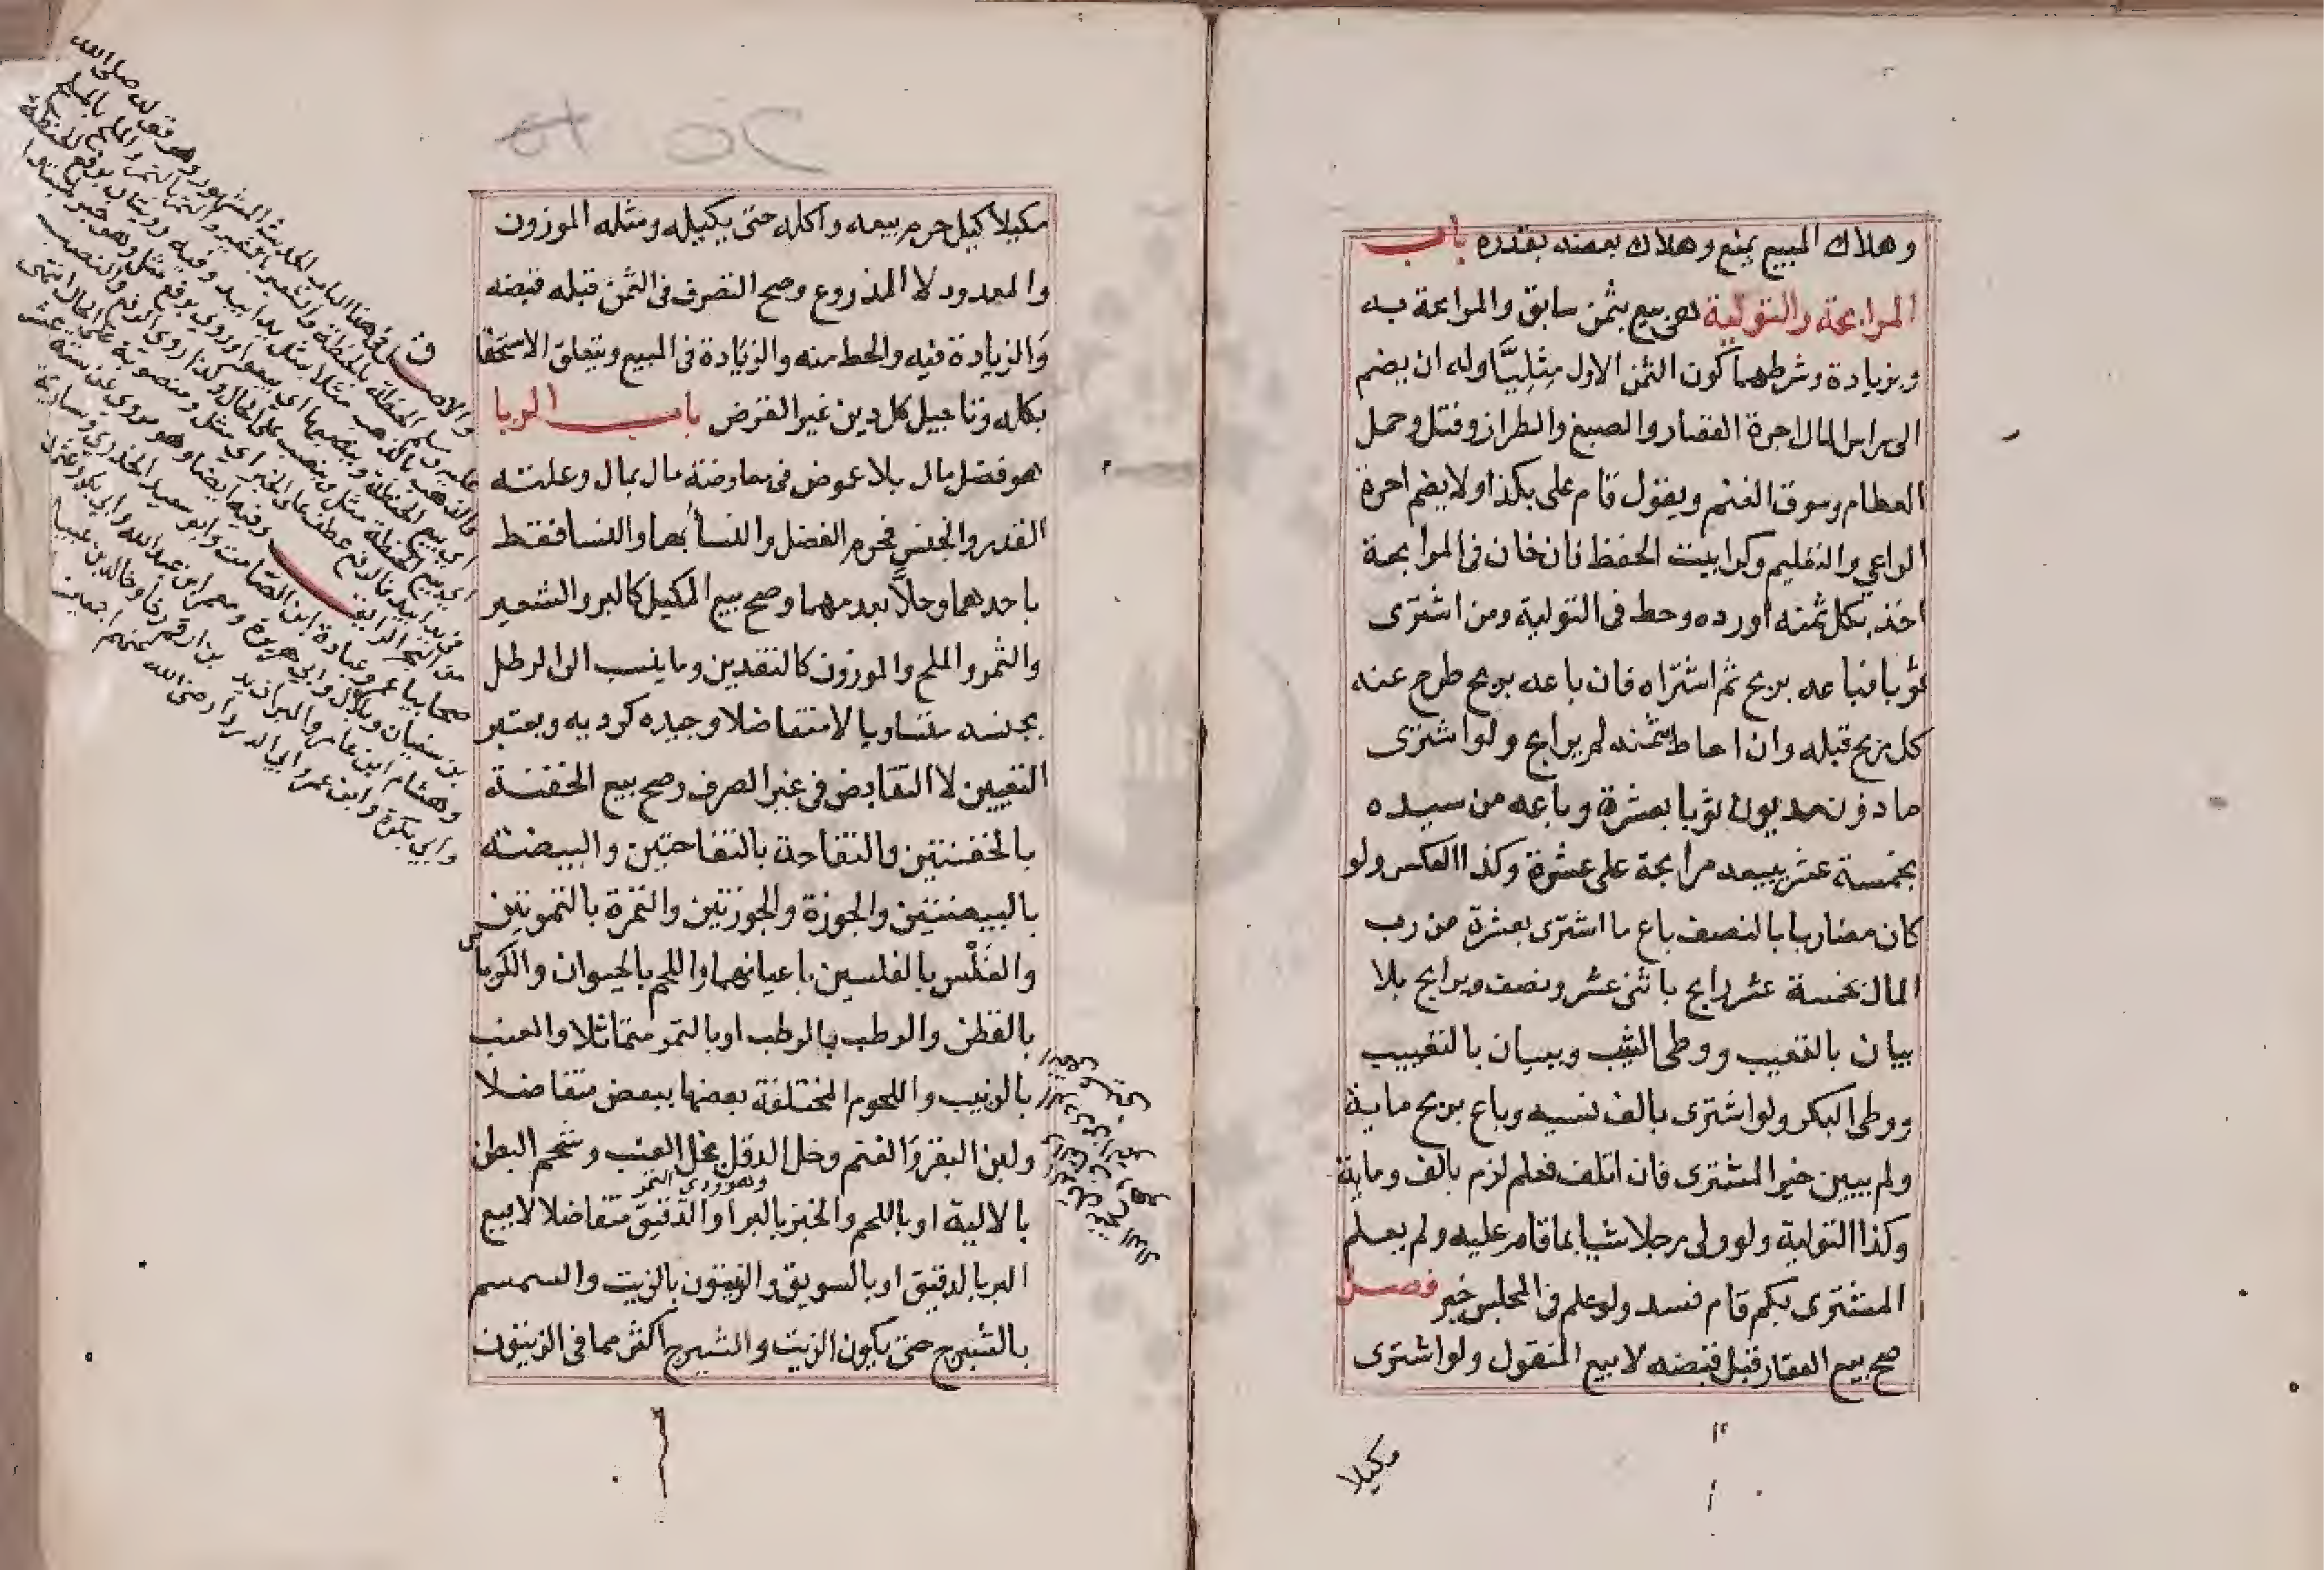 وهلاك المبيع يمنع وهلاك بعضه بقدره باب
المرابحة والتولية هى بيع بثمن سابق والمرابحة به
وبزيادة وشرطهما كون الثمن الاول مثليًّا وله ان يضم
الى راس المال اجرة القصار والصبغ والطراز وفتل وحمل
الطعام وسوق الغنم ويقول قام على بكذا ولا يضم اجرة
الراعي والتعليم وكرا بيت الحفظ فان خان فى المرابحة
اخذ بكل ثمنه اورده وحط فى التولية ومن اشترى
ثوبا فباعه بربح ثم اشتراه فان باعه بربح طرح عنه
كل ربح قبله وان احاط بثمنه لم يرابح ولو اشترى
ماذون مديون ثوبا بعشرة وباعه من سيده
بخمسة عشر يبيعه مرابحة على عشرة وكذا العكس ولو
كان مضاربا بالنصف باع ما اشترى بعشرة من رب
المال بخمسة عشر رابح باثنى عشر ونصف ويرابح بلا
بيان بالتعيب ووطى الثيب وببيان بالتعييب
ووطى البكر ولو اشترى بالف نسيه وباع بربح ماية
ولم يبيين خير المشترى فان اتلف فعلم لزم بالف وماية
وكذا التولية ولو ولى رجلا شيا بما قام عليه ولم يعلم
المشترى بكم قام فسد ولو علم فى المجلس خير فصل
صح بيع العقار قبل قبضه لا بيع المنقول ولو اشترى
مكيلا
مكيلا كيل حرم بيعه واكله حتى يكيله ومثله الموزون
والمعدود لا المذروع وصح التصرف فى الثمن قبله قبضه
والزيادة فيه والحط منه والزيادة فى المبيع ويتعلق الاستحقا
بكله وتاجيل كل دين غير القرض باب الربا
هو فضل مال بلا عوض فى معاوضة مال بمال وعلته
القدر والجنس فحرم الفضل والنسا بهما والنسا فقط
باحدهما وحلا بعدمهما وصح بيع المكيل كالبر والشعير
والتمر والملح والموزون كالنقدين وما ينسب الى الرطل
بجنسه متساويا لا متفاضلا وجيده كرديه ويعتبر
التعيين لا التقابض فى غير الصرف وصح بيع الحفنة
بالحفنتين والتفاحة بالتفاحتين والبيضة
بالبيضتين والجوزة والجوزتين والتمرة بالتمرتين
والفَلْس بالفلسين باعيانهما واللحم بالحيوان والكرباس
بالقطن والرطب بالرطب او بالتمر متماثلا والعنب
بالزبيب واللحوم المختلفة بعضها ببعض متفاضلا
ولبن البقر والغنم وخل الدقل بخل العنب وشحم البطن
وهو ردى التمر
بالالية او باللحم والخبز بالبر او الدقيق متفاضلا لا بيع
البر بالدقيق او بالسويق والزيتون بالزيت والسمسم
بالشيرج حتى يكون الزيت والشيرج اكثر مما فى الزيتون
والاصل فى هذا الباب الحديث المشهور وهو قوله صلى الله
عليه وسلم الحنطة بالحنطة والشعير بالشعير والتمر بالتمر والملح بالملح